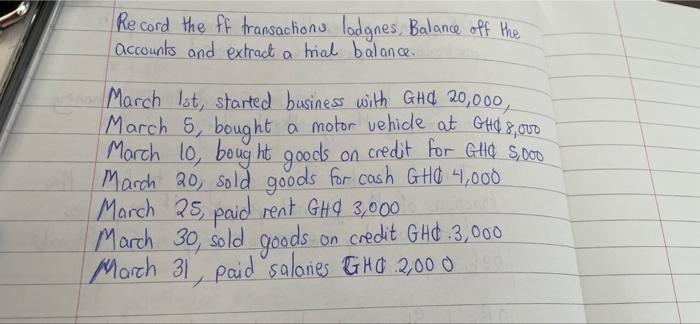 Record the ff transactions ladgnes, Balance off the
accounts and extract a trial balance.
March 1st, started business with GH₵ 20,000,
March 5, bought a motor vehicle at GH₵ 8,000
March 10, bought goods on credit for GH₵ 5,000
March 20, sold goods for cash GH₵ 4,000
March 25, paid rent GH₵ 3,000
March 30, sold goods on credit GH₵.3,000
March 31, paid salaries GH₵ 2,000